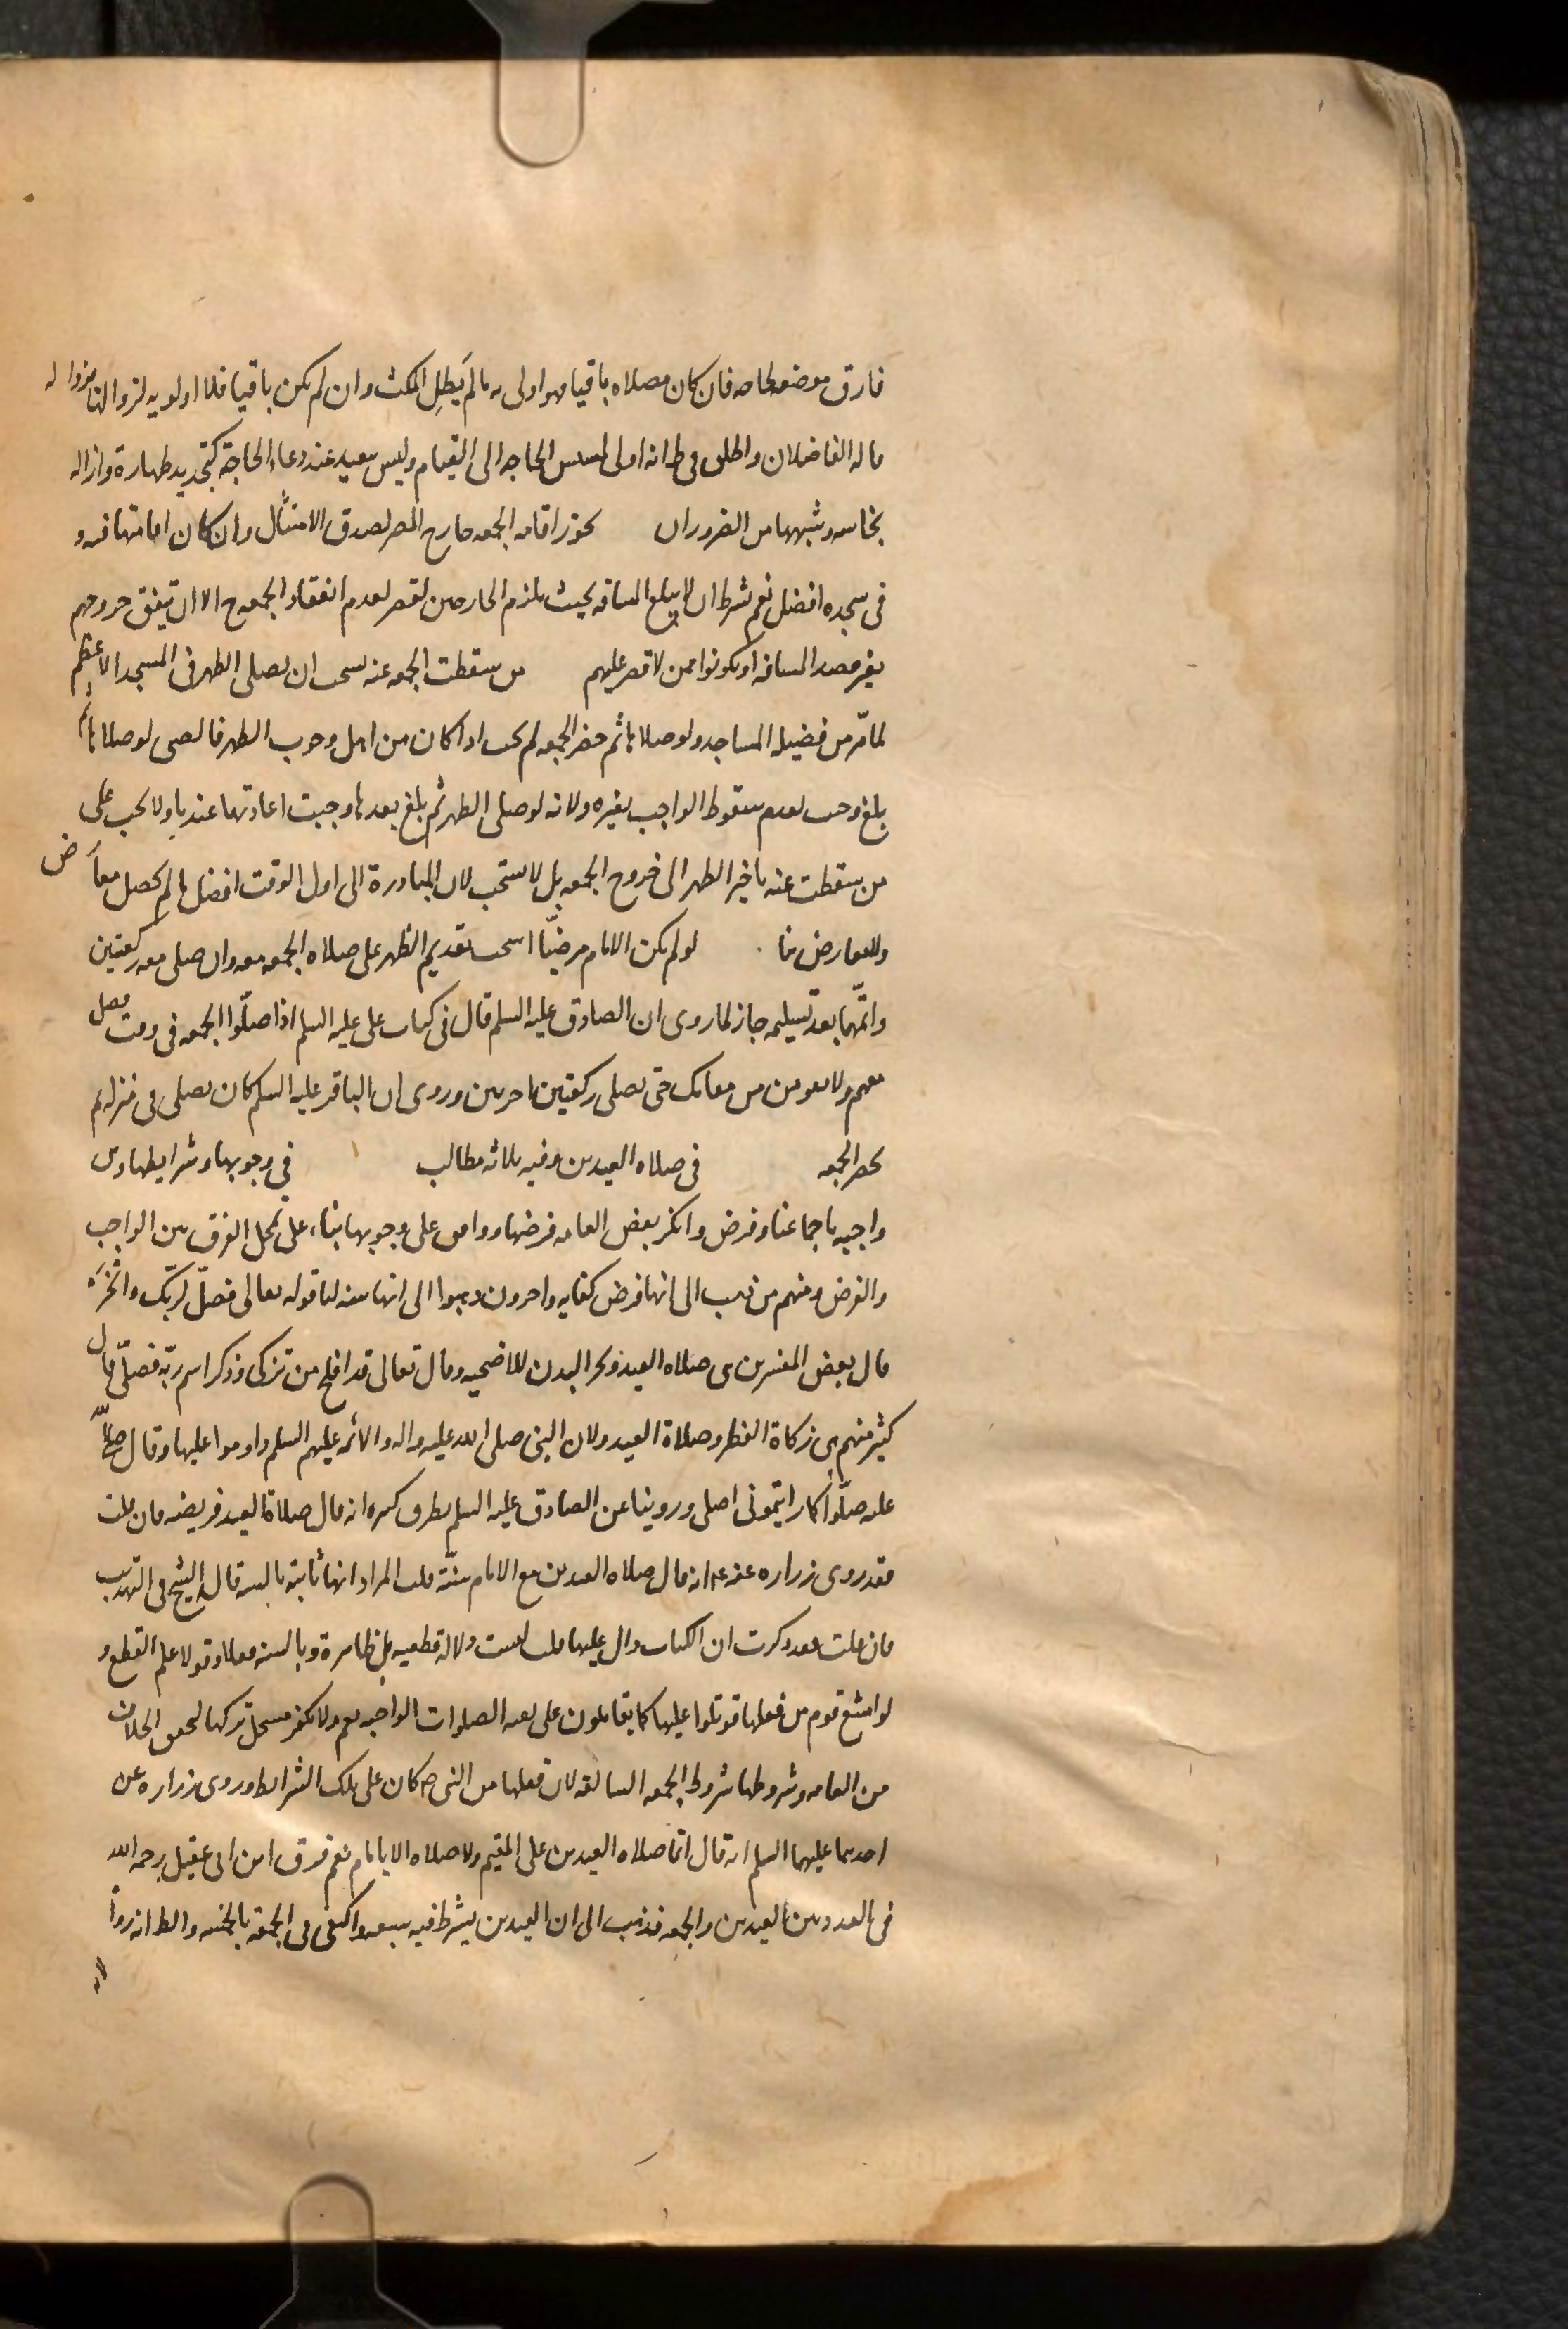 فارق موضعه لحاجة فان كان مصلاه باقيا فهو اولى به ما لم يَطِلِ المكث وان لم يكن باقيا فلا اولوية لزوالها بزواله
قاله الفاضلان واطلق في ط انه اولى لمسيس الحاجة الى القيام وليس ببعيد عند دعاء الحاجة كتجديد طهارة وازاله
نجاسه وشبهها من الضرورات يجوز اقامه الجمعه خارج المصر لصدق الامتثال وان كان اقامتها فيه و
في مسجده افضل نعم شرط ان لا يبلغ المسافه بحيث يلزم الخارجين القصر لعدم انعقاد الجمعه ح الا ان يتفق خروجهم
بغير قصد المسافه او يكونوا ممن لا قصر عليهم من سقطت الجمعه عنه يستحب ان يصلى الظهر في المسجد الاعظم
لما مرّ من فضيله المساجد ولو صلاها ثم حضر الجمعه لم تجب اذا كان من اهل وجوب الظهر فالصبى لو صلاها ثم
بلغ وجبت لعدم سقوط الواجب بغيره ولانه لو صلى الظهر ثم بلغ بعدها وجبت اعادتها عندنا ولا يجب على
من سقطت عنه تاخير الظهر الى خروج الجمعه بل لا يستحب لان المبادرة الى اول الوقت افضل ما لم يحصل معارض
ولا معارض هنا لو لم يكن الامام مرضيّا استحب تقديم الظهر على صلاه الجمعه معه وان صلى معه ركعتين
واتمّها بعد تسليمه جاز لما روى ان الصادق عليه السلم قال في كتاب على عليه السلم اذا صلّوا الجمعه فى وقت فصل
معهم ولا تقومن من مقامك حتى تصلى ركعتين اخريين وروى ان الباقر عليه السلم كان يصلى في منزله ثم
يحضر الجمعه في صلاه العيدين وفيه ثلاثه مطالب في وجوبها وشرايطها وهى
واجبه باجماعنا وفرض وانكر بعض العامه فرضها ووافق على وجوبها بناء على تمحل الفرق بين الواجب
والفرض ومنهم من ذهب الى انها فرض كفايه واخرون ذهبوا الى انها سنه لنا قوله تعالى فصلّ لربّك وانحَرْ
قال بعض المفسرين هى صلاه العيد ونحر البدن للاضحيه وقال تعالى قد افلح من تزكى وذكر اسم ربّه فصلّى قال
كثير منهم هى زكاة الفطر وصلاة العيد ولان النبى صلى الله عليه واله والائمه عليهم السلم داوموا عليها وقال صلى الله
عليه صلّوا كما رايتمونى اصلى وروينا عن الصادق عليه السلم بطرق كثيره انه قال صلاة العيد فريضه فان قلت
فقد روى زراره عنه ع انه قال صلاه العيدين مع الامام سنّة قلت المراد انها ثابته بالسنه قال الشيخ في التهذيب
فان قلت فقد ذكرت ان الكتاب دال عليها قلت ليست دلالة قطعيه بل ظاهرة وبالسنه فعلا وقولا علم القطع و
لو امتنع قوم من فعلها قوتلوا عليها كما يقاتلون على بقيه الصلوات الواجبه نعم ولا يكفر مستحلّ تركها لتحقق الخلاف
من العامه وشروطها شروط الجمعه السالفه لان فعلها من النبى ص كان على تلك الشرايط وروى زراره عن
احدهما عليهما السلم انه قال انما صلاه العيدين على المقيم ولا صلاه الا بامام نعم فرق ابن ابى عقيل رحمه الله
في العدد بين العيدين والجمعه فذهب الى ان العيدين يشترط فيه سبعه واكتفى في الجمعة بالخمسه والظ انه رواه
لانه